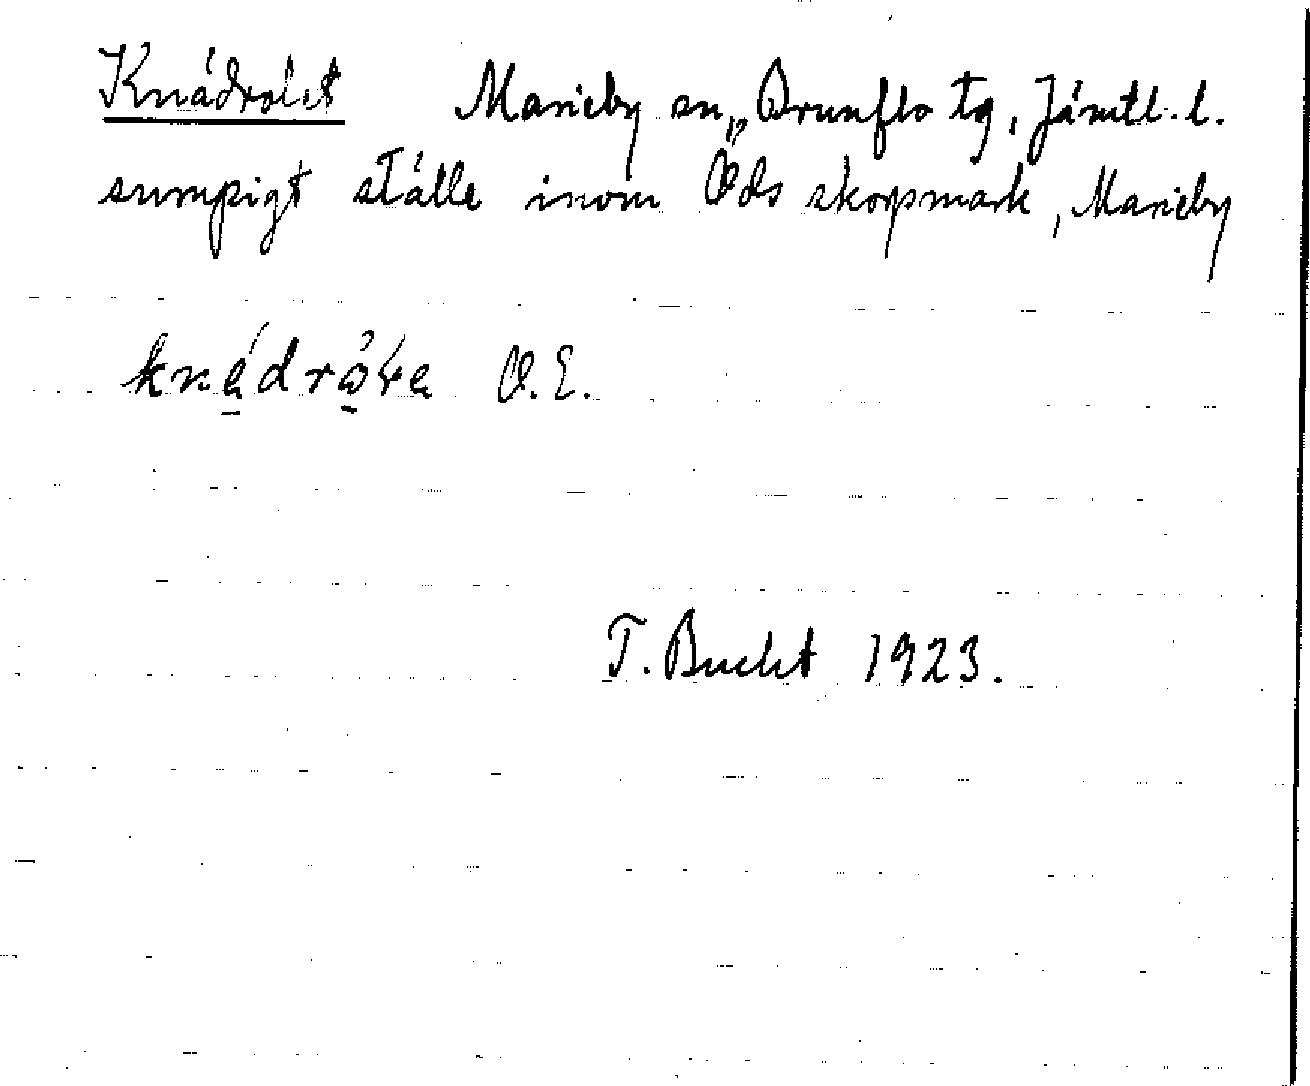 Knädrölet Marieby sn, Brunflo tg, Jämtl. l.
sumpigt ställe inom Öds skogsmark, Marieby
O.E.
T. Bucht 1923.